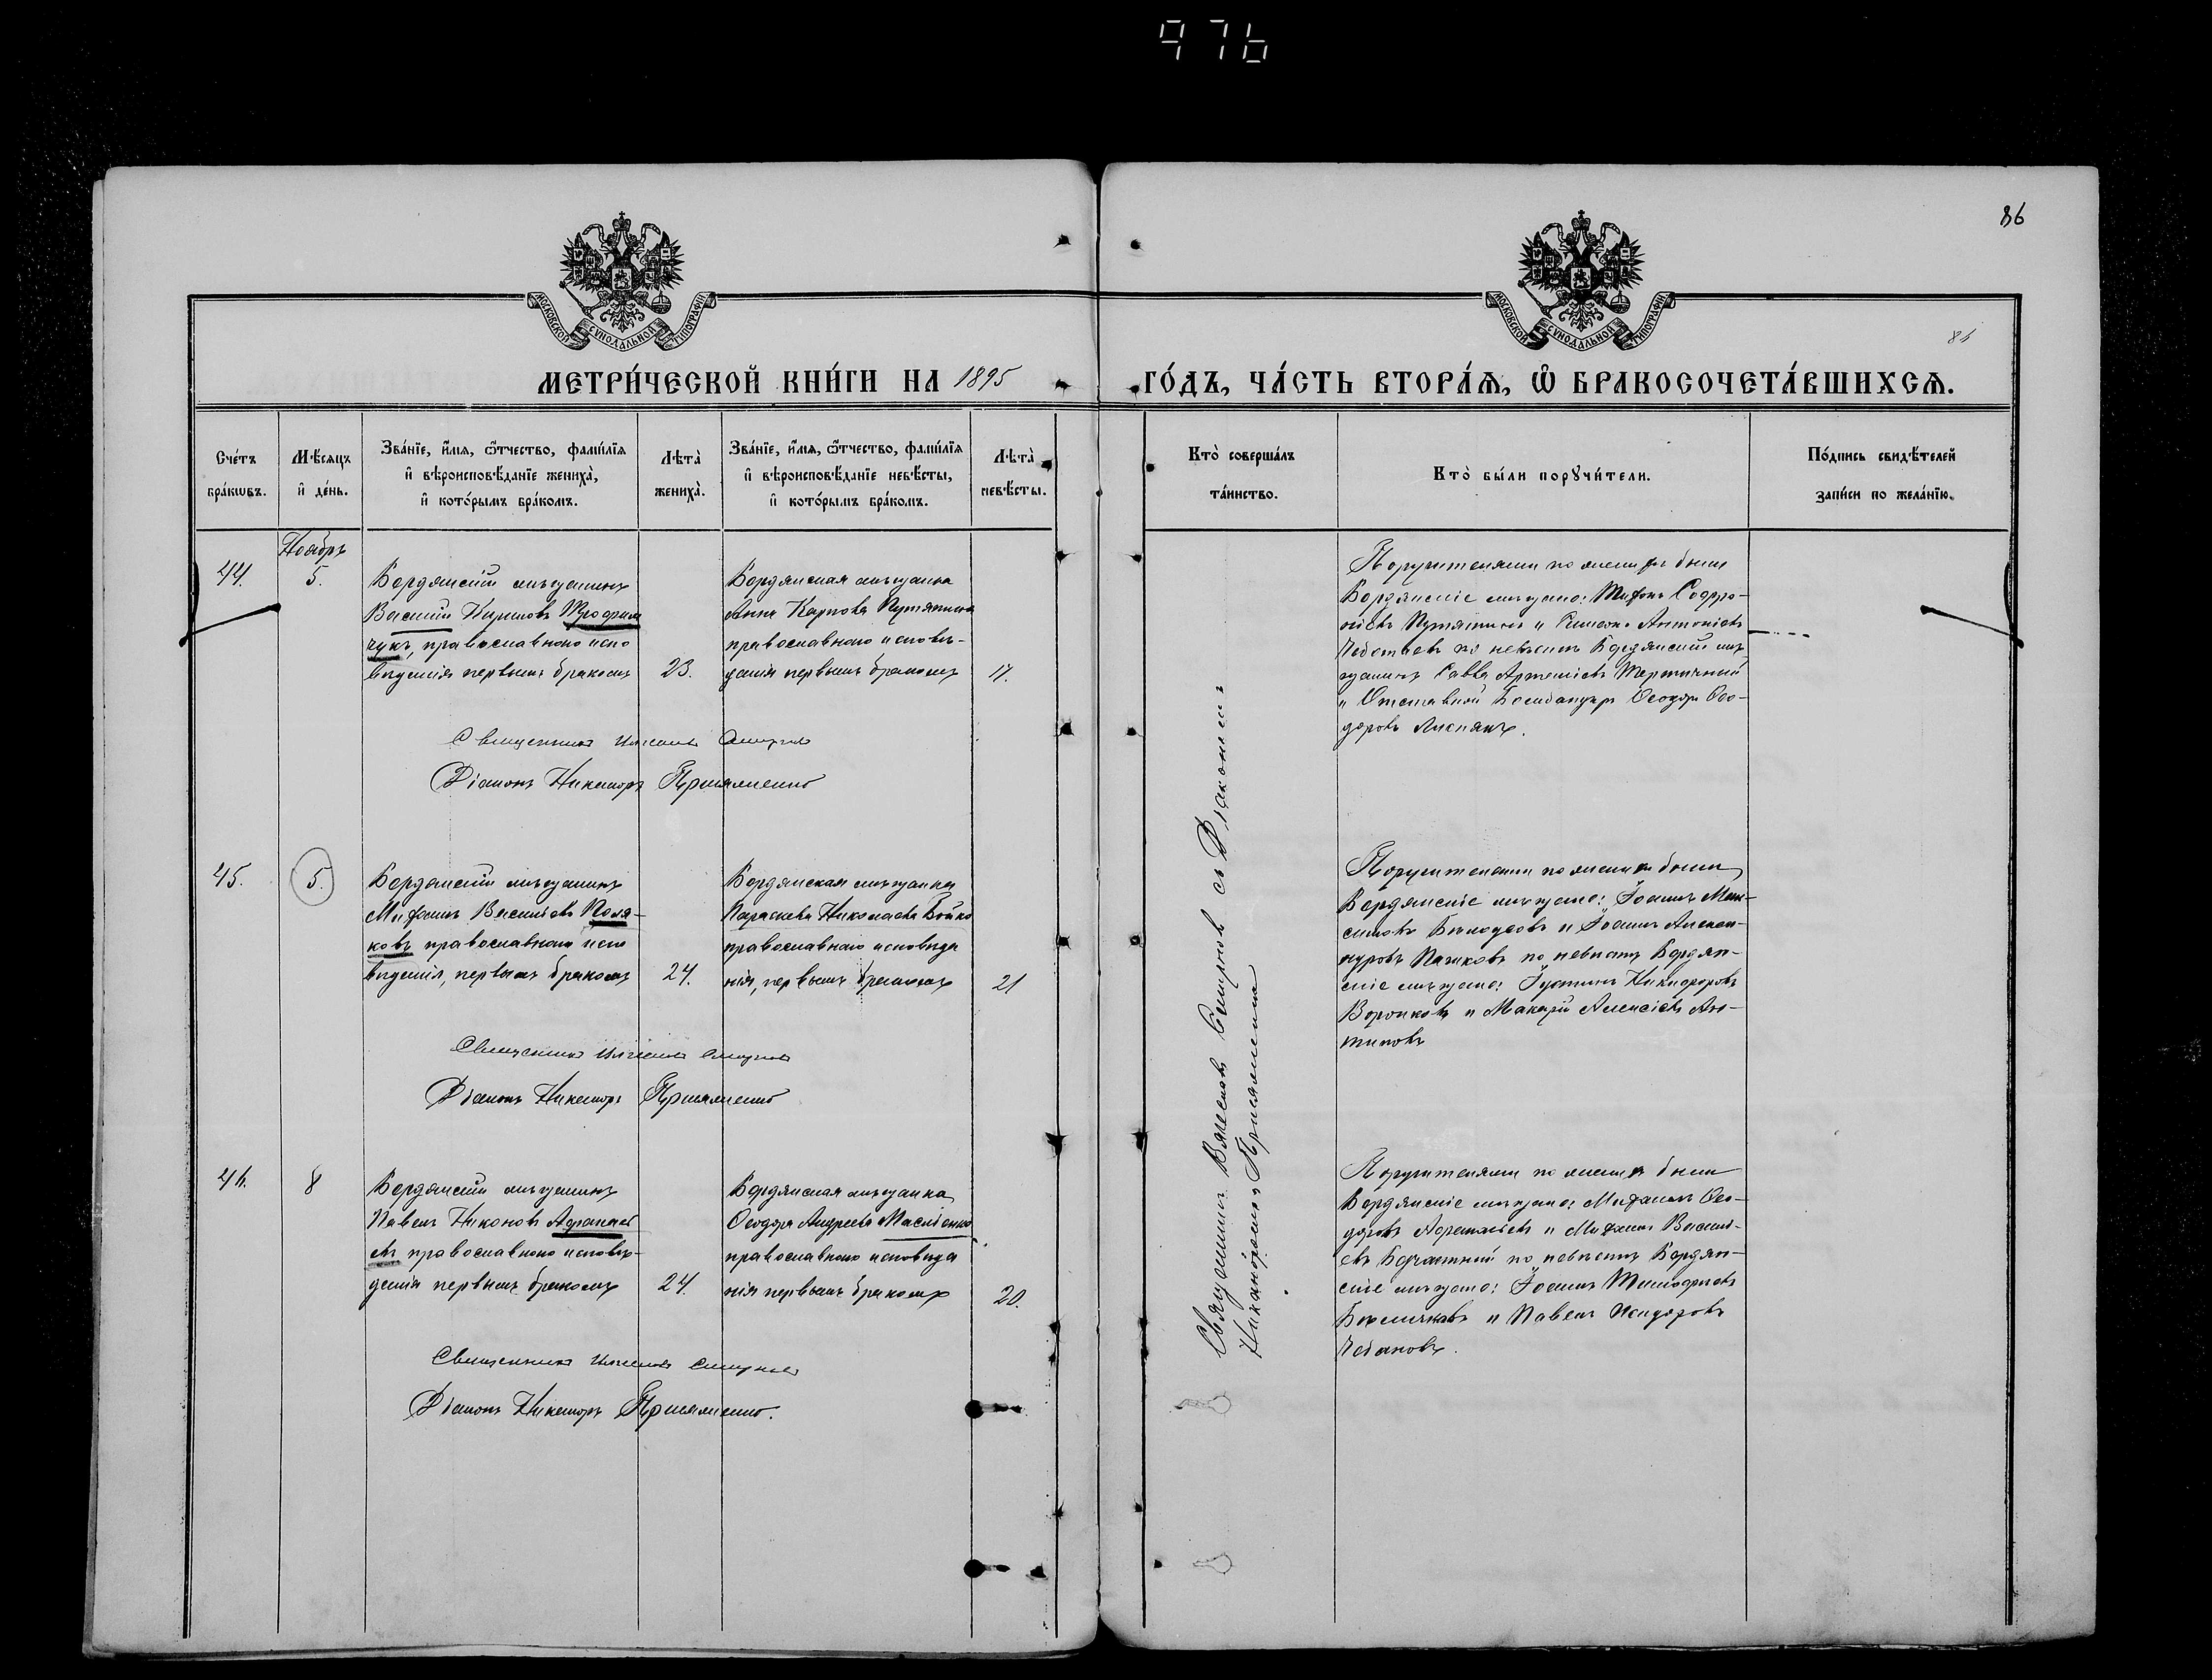 976
86
86
МОСКОВСКОЙ СѴНОДАЛЬНОЙ ТИПОГРАФІИ
МОСКОВСКОЙ СѴНОДАЛЬНОЙ ТИПОГРАФІИ
МЕТРИ́ЧЕСКОЙ КНИ́ГИ НА 1895 ГО́ДЪ, ЧА́СТЬ ВТОРА́Ѧ, Ѽ БРАКОСОЧЕТА́ВШИХСѦ.
Сче́тъ
бра́кѡвъ.
Мѣ́сѧцъ
и҆ де́нь.
Зва́нїе, и҆́мѧ, ѻ҆́тчество, фами́лїѧ
и҆ вѣроисповѣ́данїе жениха̀,
и҆ кото́рымъ бра́комъ.
Лѣта̀
жениха̀.
Зва́нїе, и҆́мѧ, ѻ҆́тчество, фами́лїѧ
и҆ вѣроисповѣ́данїе невѣ́сты,
и҆ кото́рымъ бра́комъ.
Лѣта̀
невѣ́сты.
Кто̀ соверша́лъ
та́инство.
Кто̀ бы́ли порꙋчи́тели.
По́дпись свидѣ́телей
за́писи по жела́нїю.
Ноябрь
44.
5.
Бердянскій мѣщанинъ
Василій Кириловъ Трофим
чукъ, православнаго испо
вѣданія первымъ бракомъ
23.
Бердянская мѣщанка
Анна Карпова Путятина
православнаго исповѣ-
данія первымъ бракомъ
17.
Поручителями по женихѣ были
Бердянскіе мѣщане: Тифонъ Софро-
ніевъ Путятинъ и Антоніевъ
по невѣстѣ Бердянскій мѣ-
щанинъ Савва Артеміевъ
и Отставной Бомбандиръ Ѳеодоръ Ѳео-
доровъ
Священникъ Смирновъ
Діаконъ Никаноръ Присяженко
45.
5.
Бердянскій мѣщанинъ
Михаилъ Василіевъ Поля-
ковъ православнаго испо
вѣданія, первымъ бракомъ
24.
Бердянская мѣщанка
Параскева Николаева Бойко
православнаго исповѣда
нія, первымъ бракомъ
21
Поручителями по женихѣ были
Бердянскіе мѣщане: Іоаннъ Мак-
симовъ и Іоаннъ Алексан-
дровъ Пашковъ по невѣстѣ Бердян-
скіе мѣщане: Іустинъ Никифоровъ
Воронковъ и Макарій Алексіевъ Ан-
типовъ
Священникъ Смирновъ
Діаконъ Никаноръ Присяженко
46.
8
Бердянскій мѣщанинъ
Павелъ Никоновъ Афанасі
евъ православнаго исповѣ-
данія первымъ бракомъ
24.
Бердянская мѣщанка
Ѳеодора Андреева Масліенко
православнаго исповѣда
нія первымъ бракомъ
20.
Поручителями по женихѣ были
Бердянскіе мѣщане: Михаилъ Ѳео-
доровъ Афанасьевъ и Михаилъ Василі-
евъ по невѣстѣ Бердян-
скіе мѣщане: Іоаннъ Тимофіевъ
и Павелъ Исидоровъ
Чабановъ.
Священникъ Смирновъ
Діаконъ Никаноръ Присяженко.
Священникъ Вячеславъ Смирновъ съ Діакономъ
Никаноромъ Присяженко